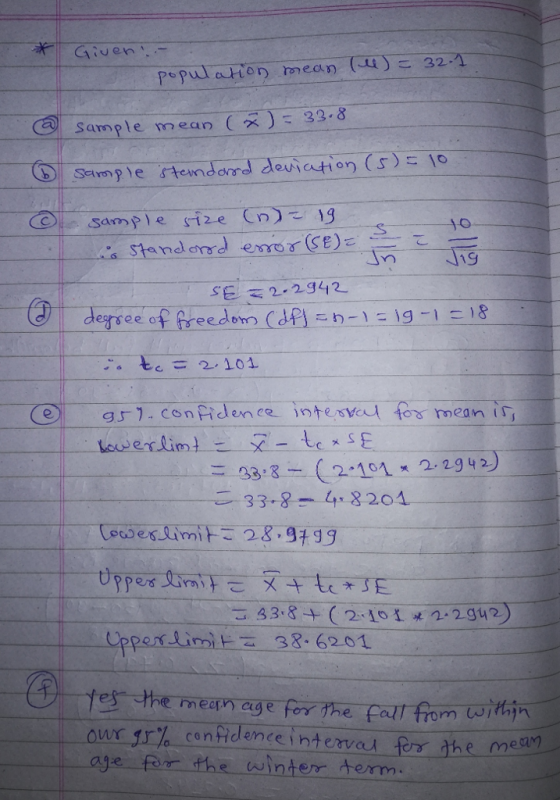 * Given:-
population mean (μ) = 32.1
(a) sample mean (x̄) = 33.8
(b) sample standard deviation (s) = 10
(c) sample size (n) = 19
∴ standard error (SE) = s/√n = 10/√19
SE = 2.2942
(d) degree of freedom (df) = n-1 = 19-1 = 18
∴ tc = 2.101
(e) 95% confidence interval for mean is,
Lower limt = x̄ - tc * SE
= 33.8 - (2.101 * 2.2942)
= 33.8 - 4.8201
Lower limit = 28.9799
Upper limit = x̄ + tc * SE
= 33.8 + (2.101 * 2.2942)
Upper limit = 38.6201
(f) yes the mean age for the fall from within
our 95% confidence interval for the mean
age for the winter term.